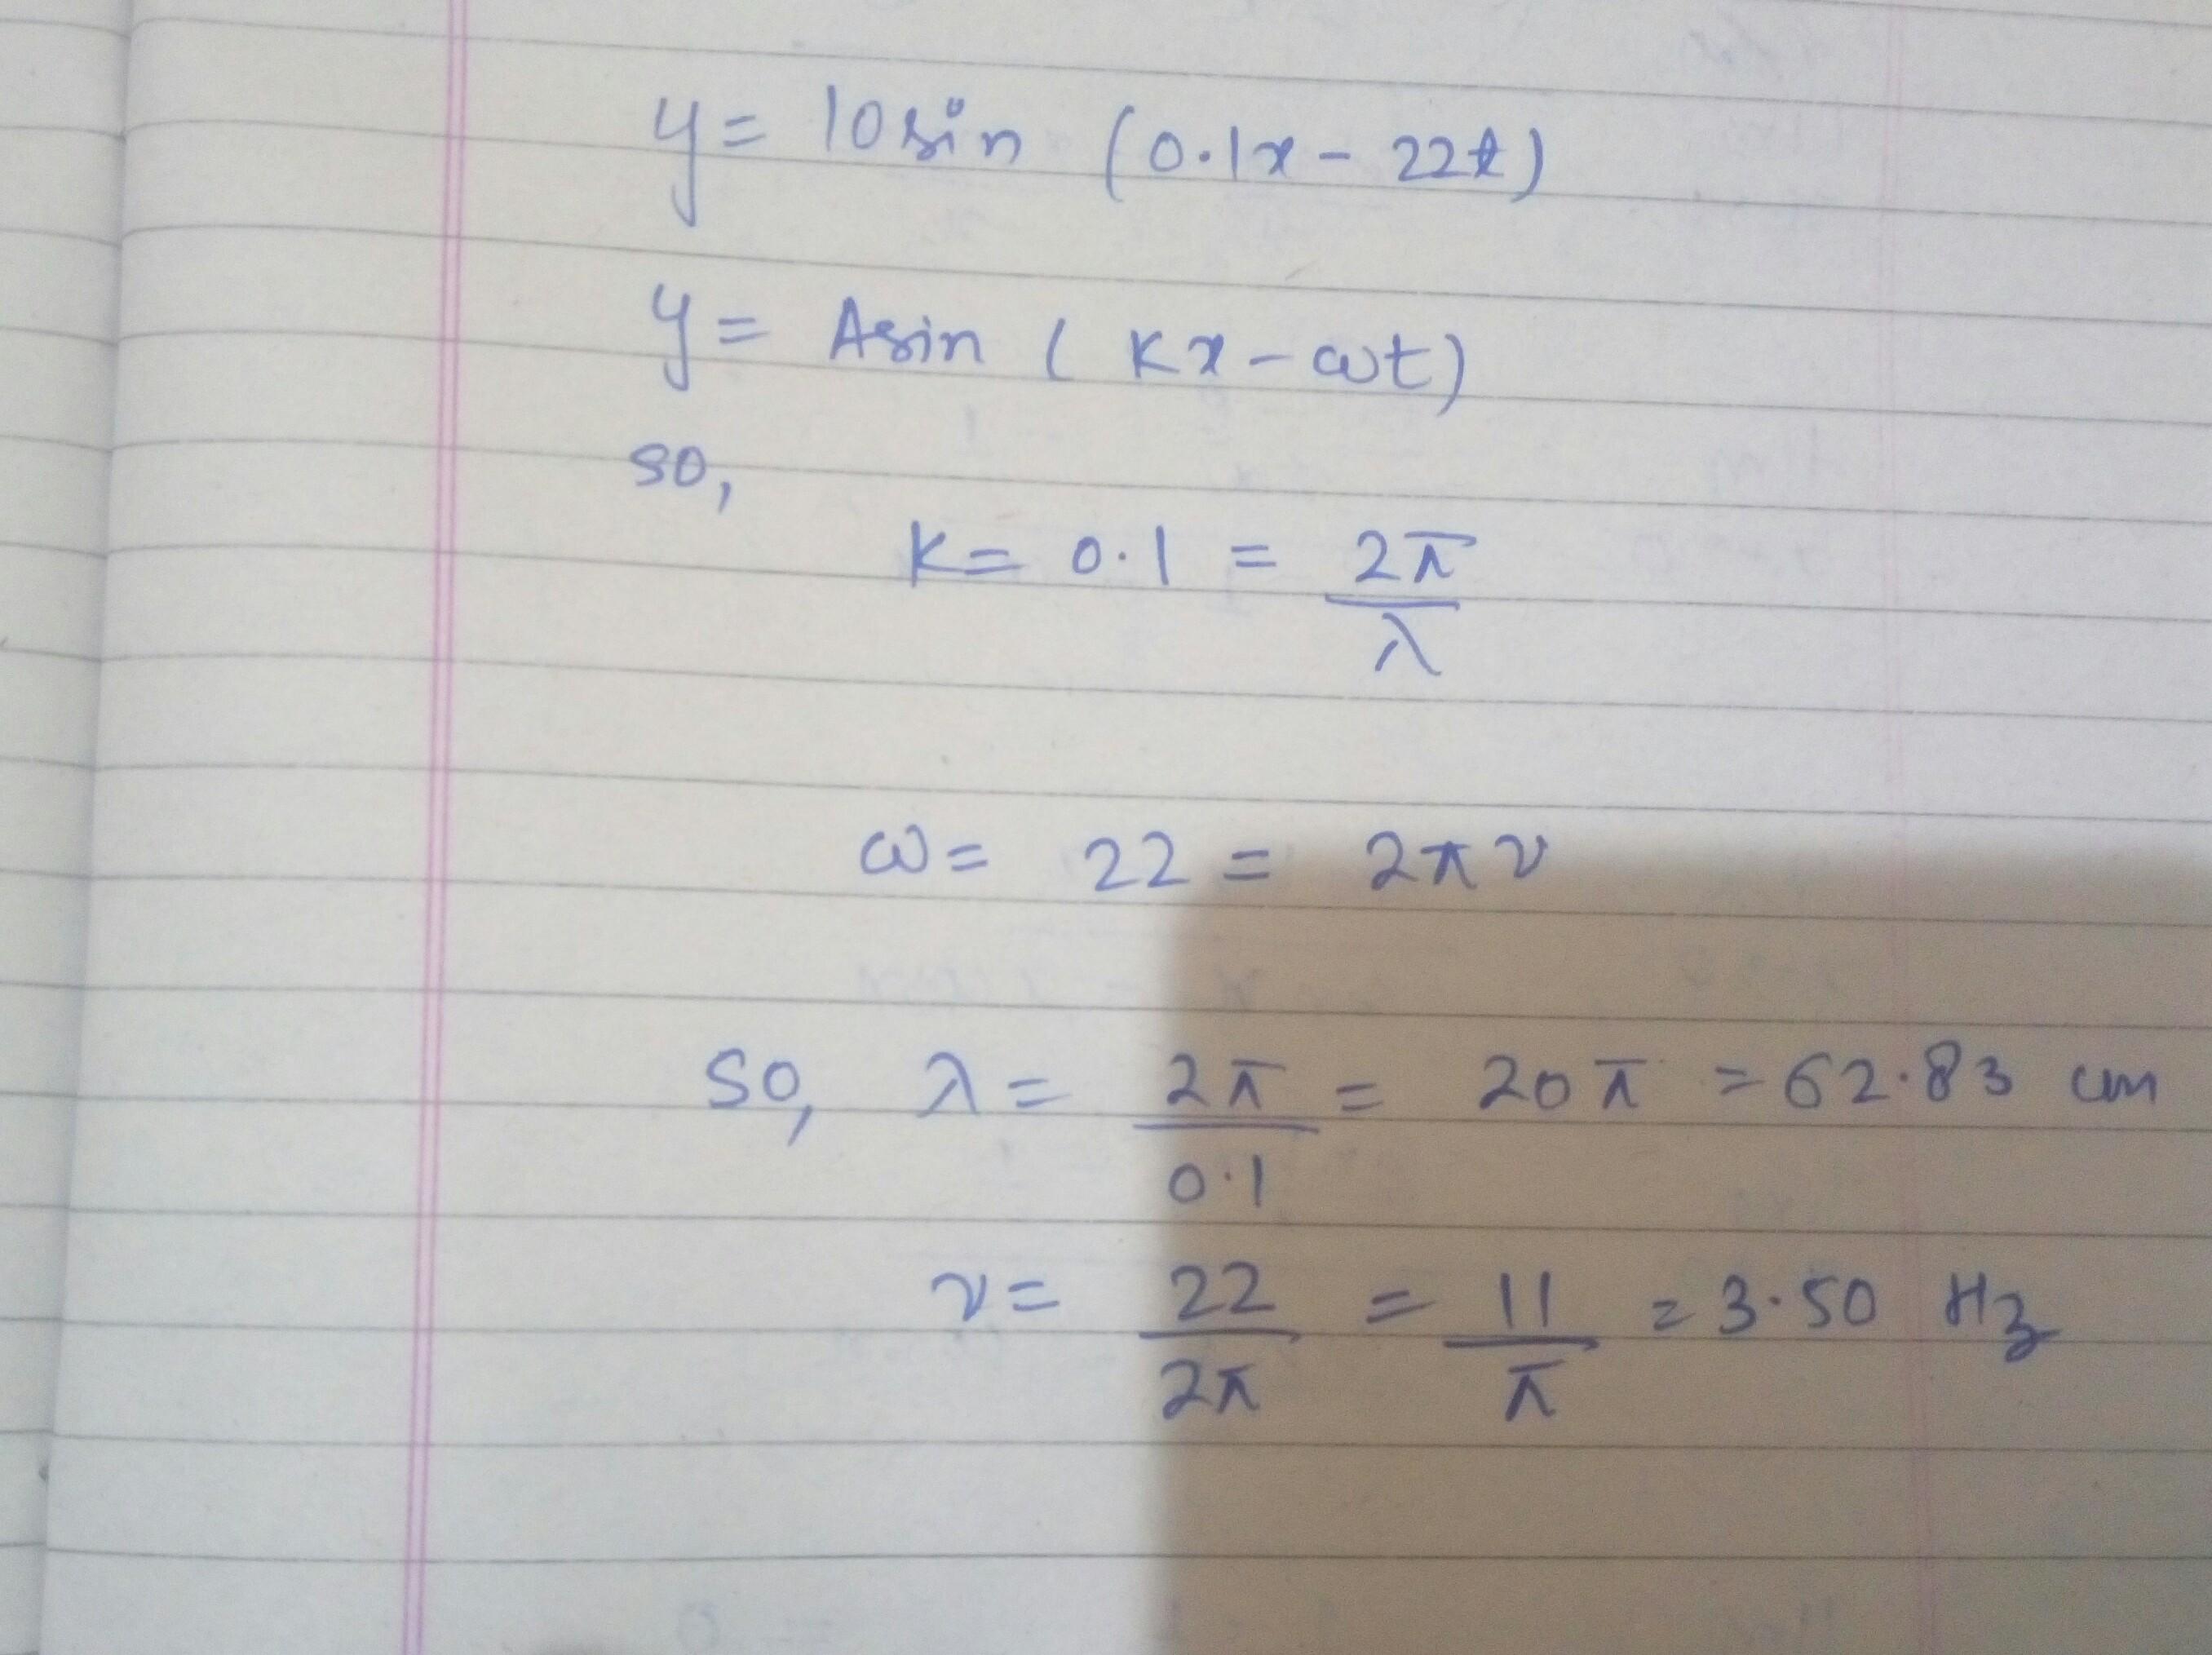 y = 10 sin (0.1x - 22t)
y = A sin ( Kx - ωt)
so,
K = 0.1 = 2π/λ
ω = 22 = 2πν
so, λ = 2π/0.1 = 20π = 62.83 cm
ν = 22/2π = 11/π = 3.50 Hz